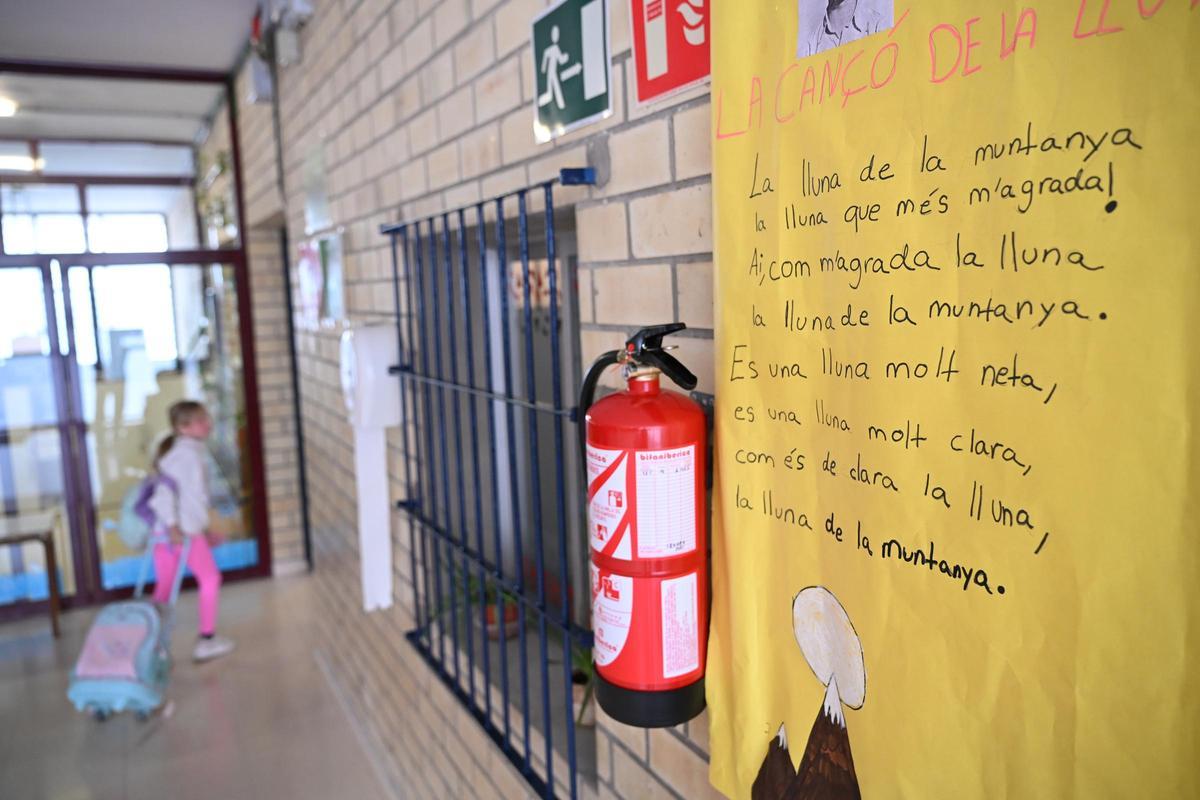 LA CANÇÓ DE LA
La lluna de la muntanya
la lluna que més m'agrada!
Ai, com m'agrada la lluna
la lluna de la muntanya.
Es una lluna molt neta,
es una lluna molt clara,
com és de clara la lluna,
la lluna de la muntanya.
bifoniberica